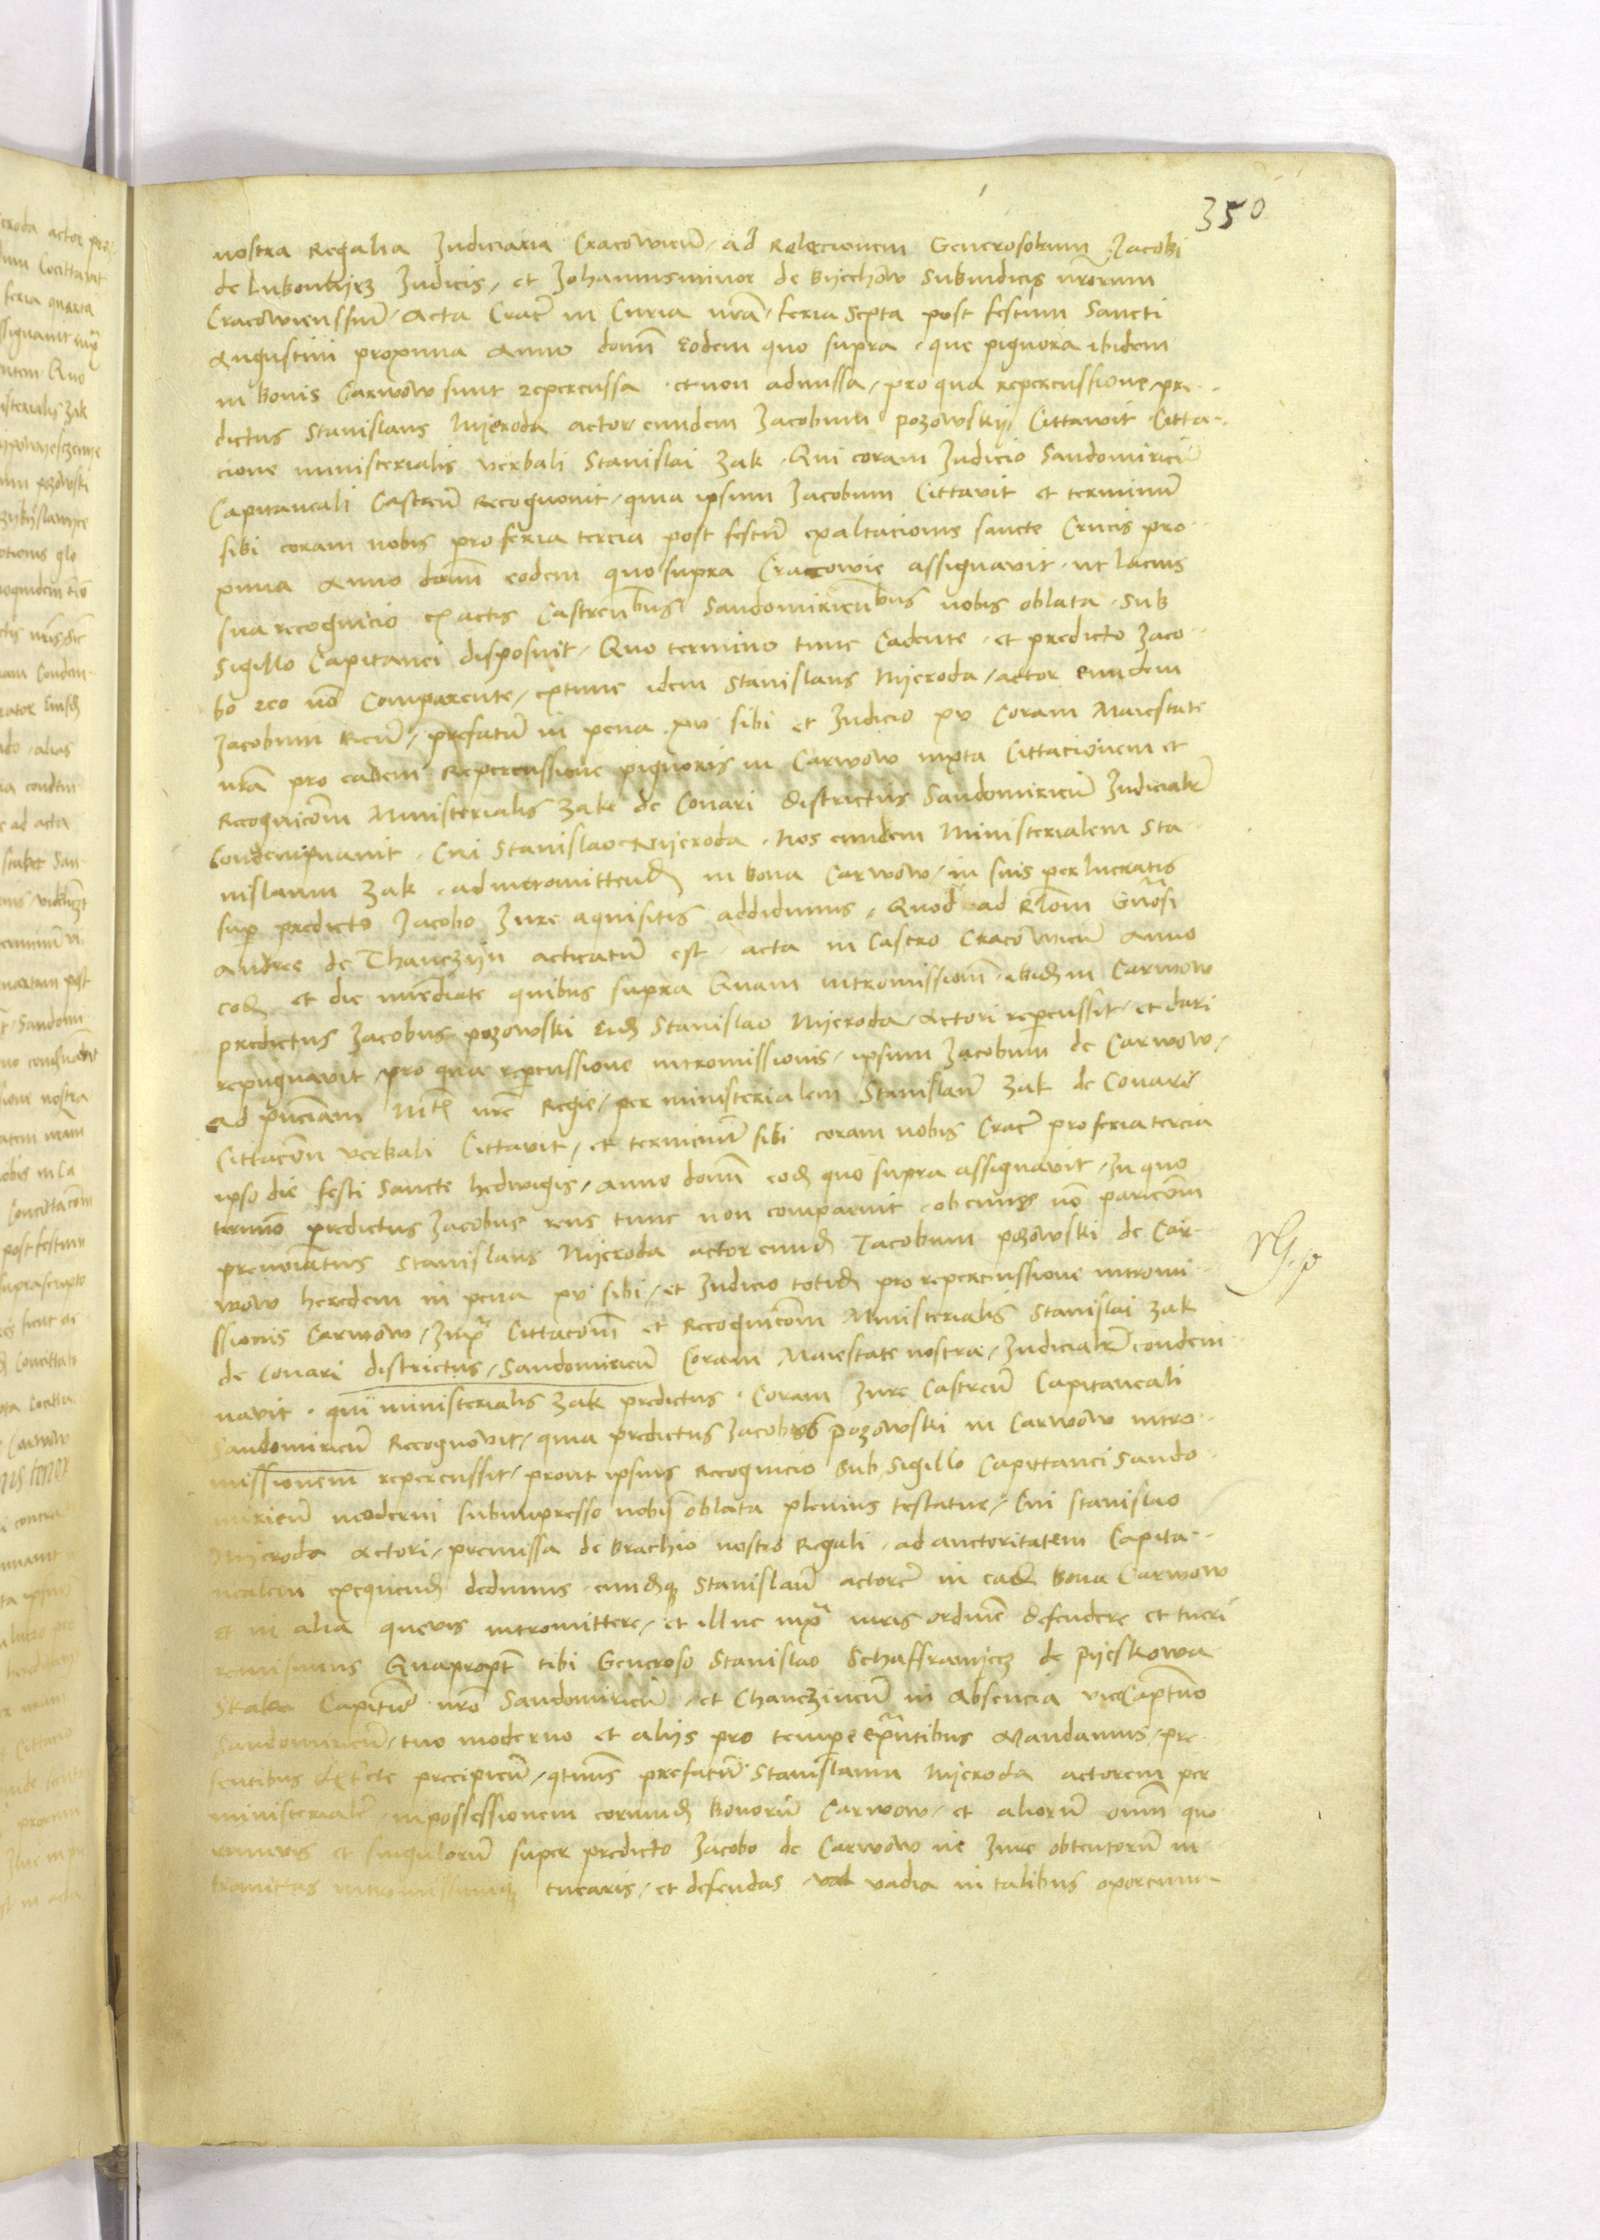 350
nostra Regalia Judiciaria Cracowień / ad Relacionem Generosorum Jacobi
de Lubomyrz Judicis / et Johannisminor de Byechow Subiudicis nrorum
Cracowiensium / Acta Crac in Curia nra / feria Sexta post festum Sancti
Augustini proxima Anno domi Eodem quo supra . que pignora ibidem
in bonis Carwow sunt repercussa . et non admissa / pro qua repercussione / pre
dictus Stanislaus Myeroda actor eundem Jacobum pozowskij Cittavit Citta
cione ministerialis verbali Stanislai Zak . Qui coram Judicio Sandomirień
Capitaneali Castreń Recognovit / quia ipsum Jacobum Cittavit et terminū
sibi coram nobis pro feria tercia post festū exaltacionis sancte Crucis pro
xima Anno domi eodem quo supra Cracowie assignavit . ut lacius
sua recognicio ex actis Castreńbus Sandomirieńbus nobis oblata . Sub
Sigillo Capitanei disposuit / Quo termino tunc Cadente . et predicto Jaco
bo reo nō Comparente / extunc idem Stanislaus Myeroda / actor Eundem
Jacobum Reū / prefatū in pena xv sibi et Judicio xv Coram Maiestate
nra pro eadem Repercussione pignoris in Carwow iuxta Cittacionem et
Recognicōm Ministerialis Zake de Conari districtus Sandomirień Judicialr
Condempnavit . Cui Stanislao Myeroda . Nos eundem Ministerialem Sta
nislaum Zak . ad intromittend in bona Carwow / in suis perlucratis
sup predicto Jacobo Jure aquisitis addidimus / Quod ad Rlōm Gnrosi
Andree de Thanczyn acticatū est . acta in Castro Cracowień Anno
eod et die immediate quibus supra Quam intromissionē . ibid in Carwow
predictus Jacobus pozowski Eid Stanislao Myeroda / Actori repercussit / et dari
repugnavit / pro qua repercussione intromissionis / ipsum Jacobum de Carwow /
ad pnciam Mtis nre Regie / per ministerialem Stanislaū Zak de Conari
Cittacōn verbali Cittavit / et terminū sibi coram nobis Crac pro feria tercia
ipso die festi Sancte hedwigis / anno domi eod quo supra assignavit / In quo
termino predictus Jacobus reus tunc non comparuit . ob cuius nō paricōm
prenoiatus Stanislaus Myeroda actor eund Jacobum pozowski de Car
wow heredem in pena xv sibi / et Judicio totid pro repercussione intromi
ssionis Carwow / Juxta Cittacōm et Recognicōm Ministerialis Stanislai Zak
de Conari districtus / Sandomirień Coram Maiestate nostra / Judicialr condem
navit . qui ministerialis Zak predictus . Coram Jure Castreń Capitaneali
Sandomirień Recognovit / quia predictus Jacobus pozowski in Carwow intro
missionem repercussit / prout ipsius Recognicio Sub Sigillo Capittanei Sando
mirień moderni subimpresso nobis oblata plenius testatur / Cui Stanislao
Myeroda Actori / premissa de brachio nostro Regali . ad auctoritatem Capita
nealem exequend dedimus . eundq Stanislaū actorē in ead bona Carwow
et in alia quevis intromittere / et illuc iuxta iuris ordinē defendere et tueri
remisimus Quapropt tibi Generoso Stanislao Schaffranyecz de Pyeskowa
Skala Capitaneo nro Sandomirień et Chanczinień in Absencia viceCaptneo
Sandomirień / tuo moderno et aliis pro tempe Exntibus Mandamus / pre
sentibus precipień / qtinus prefatū Stanislaum Myeroda actorem per
ministerialē in possessionem eorumd bonorū Carwow / et aliorū omn quo
rumvis et singulorū super predicto Jacobo de Carwow ne Jure obtentorū in
tueris / et defendas vadia in talibus oportuni